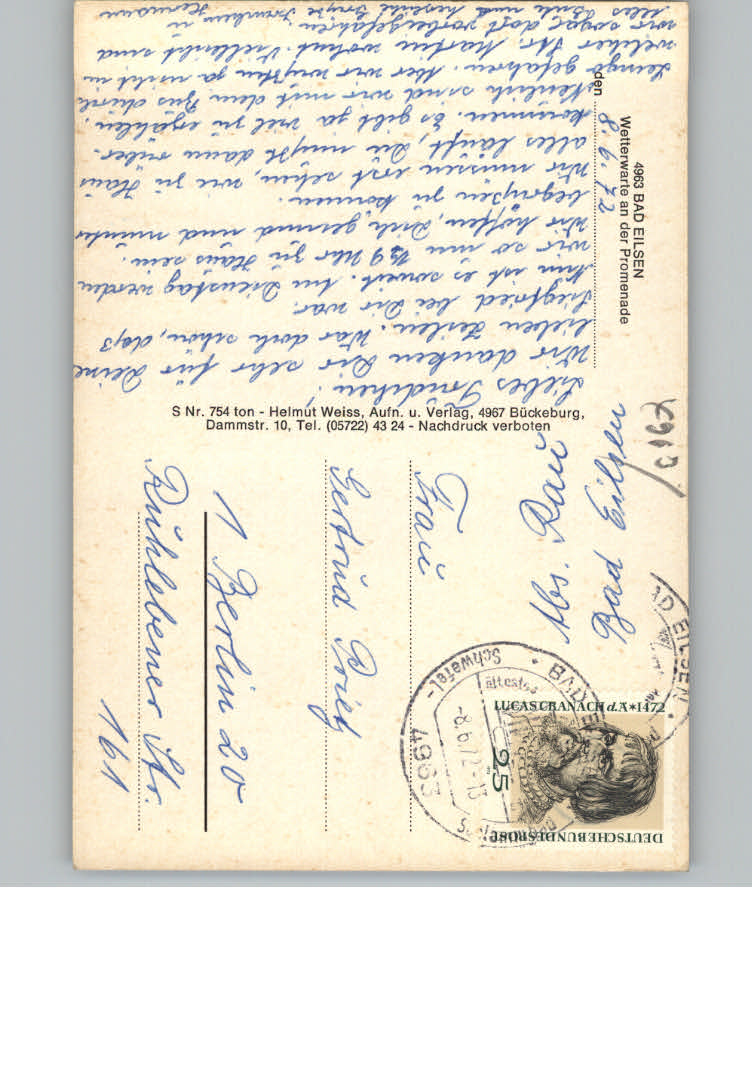 4963 BAD EILSEN
Wetterwarte an der Promenade
den 8. 6. 72
Liebes Trudchen!
Wir danken Dir sehr für Deine
lieben Zeilen. War doch schön, daß
Siegfried bei Dir war.
Nun ist es soweit. Am Dienstag werden
wir so um ½ 9 Uhr zu Haus sein.
Wir hoffen, Dich gesund und munter
begrüßen zu können.
Wir müssen erst sehen, wie zu Haus
alles läuft, Du mußt dann rüber
kommen. Es gibt ja viel zu erzählen.
Neulich sind wir mit dem Bus durch
Lemgo gefahren. Aber wir wußten ja nicht in
welcher Str. Martin wohnt. Vielleicht sind
wir sogar dort vorbeigefahren.
Alles Gute und herzliche Grüße
Hermann
S Nr. 754 ton - Helmut Weiss, Aufn. u. Verlag, 4967 Bückeburg,
Dammstr. 10, Tel. (05722) 43 24 - Nachdruck verboten
Abs. Rau
Bad Eilsen
4963
Frau
Gertrud
1 Berlin 20
Ruhlebener Str.
161
DEUTSCHE BUNDESPOST
25
LUCAS CRANACH d.Ä * 1472
4963 BAD
Schwefel-
ältestes
-8.6.72-13
BAD EILSEN